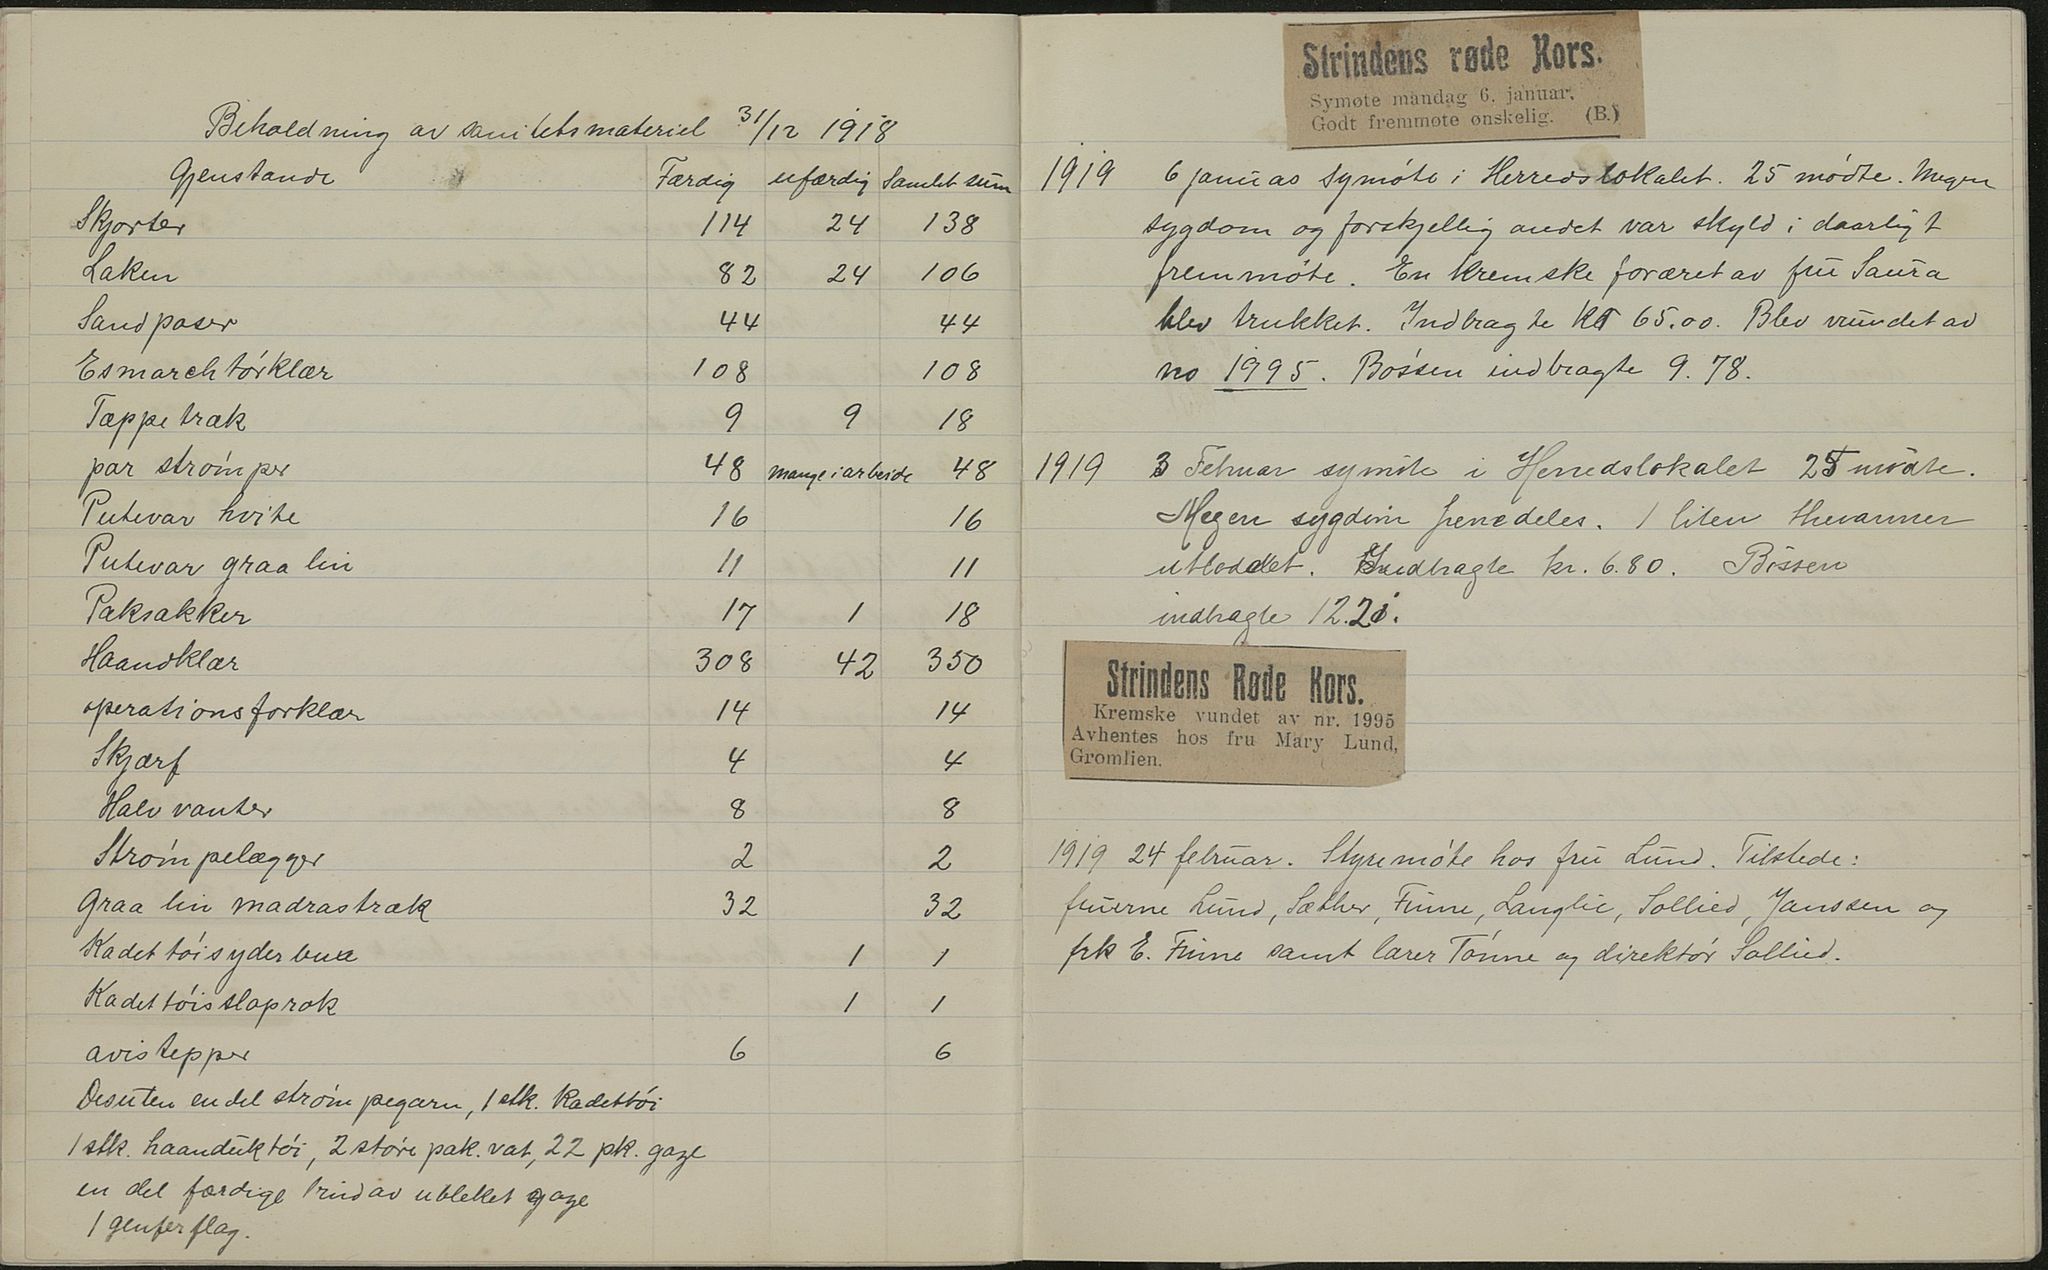 Beholdning av sanitetsmateriel 31/12 1918
Gjenstande Færdig ufærdig Samlet sum
Skjorter 114 24 138
Laken 82 24 106
Sandposer 44 44
Esmarchtörklær 108 108
Tæppetræk 9 9 18
par strömper 48 mange i arbeide 48
Putevar hvite 16 16
Putevar graa lin 11 11
Paksakker 17 1 18
Haandklær 308 42 350
operationsforklær 14 14
Skjærf 4 4
Halv vanter 8 8
Strömpelægger 2 2
Graa lin madrastræk 32 32
Kadettöisyderbuxe 1 1
Kadettöisslaprok 1 1
avistepper 6 6
Desuten endel strömpegarn, 1 stk. Kadettöi
1 stk. haanduktöi, 2 store pak. vat, 22 pk. gaze
en del færdige bind av ubleket gaze
1 genferflag.
Strindens røde Kors.
Symøte mandag 6. januar.
Godt fremmøte ønskelig. (B.)
1919 6 januar symöte i Herredslokalet. 25 mödte. Megen
sygdom og forskjellig andet var skyld i daarligt
fremmöte. En kremske foræret av fru Saura
blev trukket. Indbragte Kr 65.00. Blev vundet av
no 1995. Bössen indbragte 9.78.
1919 3 Februar symöte i Herredslokalet 25 mödte.
Megen sygdom fremdeles. 1 liten thevarmer
utloddet. Indbragte kr. 6.80. Bössen
indbragte 12.21.
Strindens Røde Kors.
Kremske vundet av nr. 1995
Avhentes hos fru Mary Lund,
Gromlien.
1919 24 februar. Styremöte hos fru Lund. Tilstede:
fruerne Lund, Sæther, Finne, Langlie, Sollied, Janssen og
frk E. Finne samt lærer Tönne og direktör Sollied.